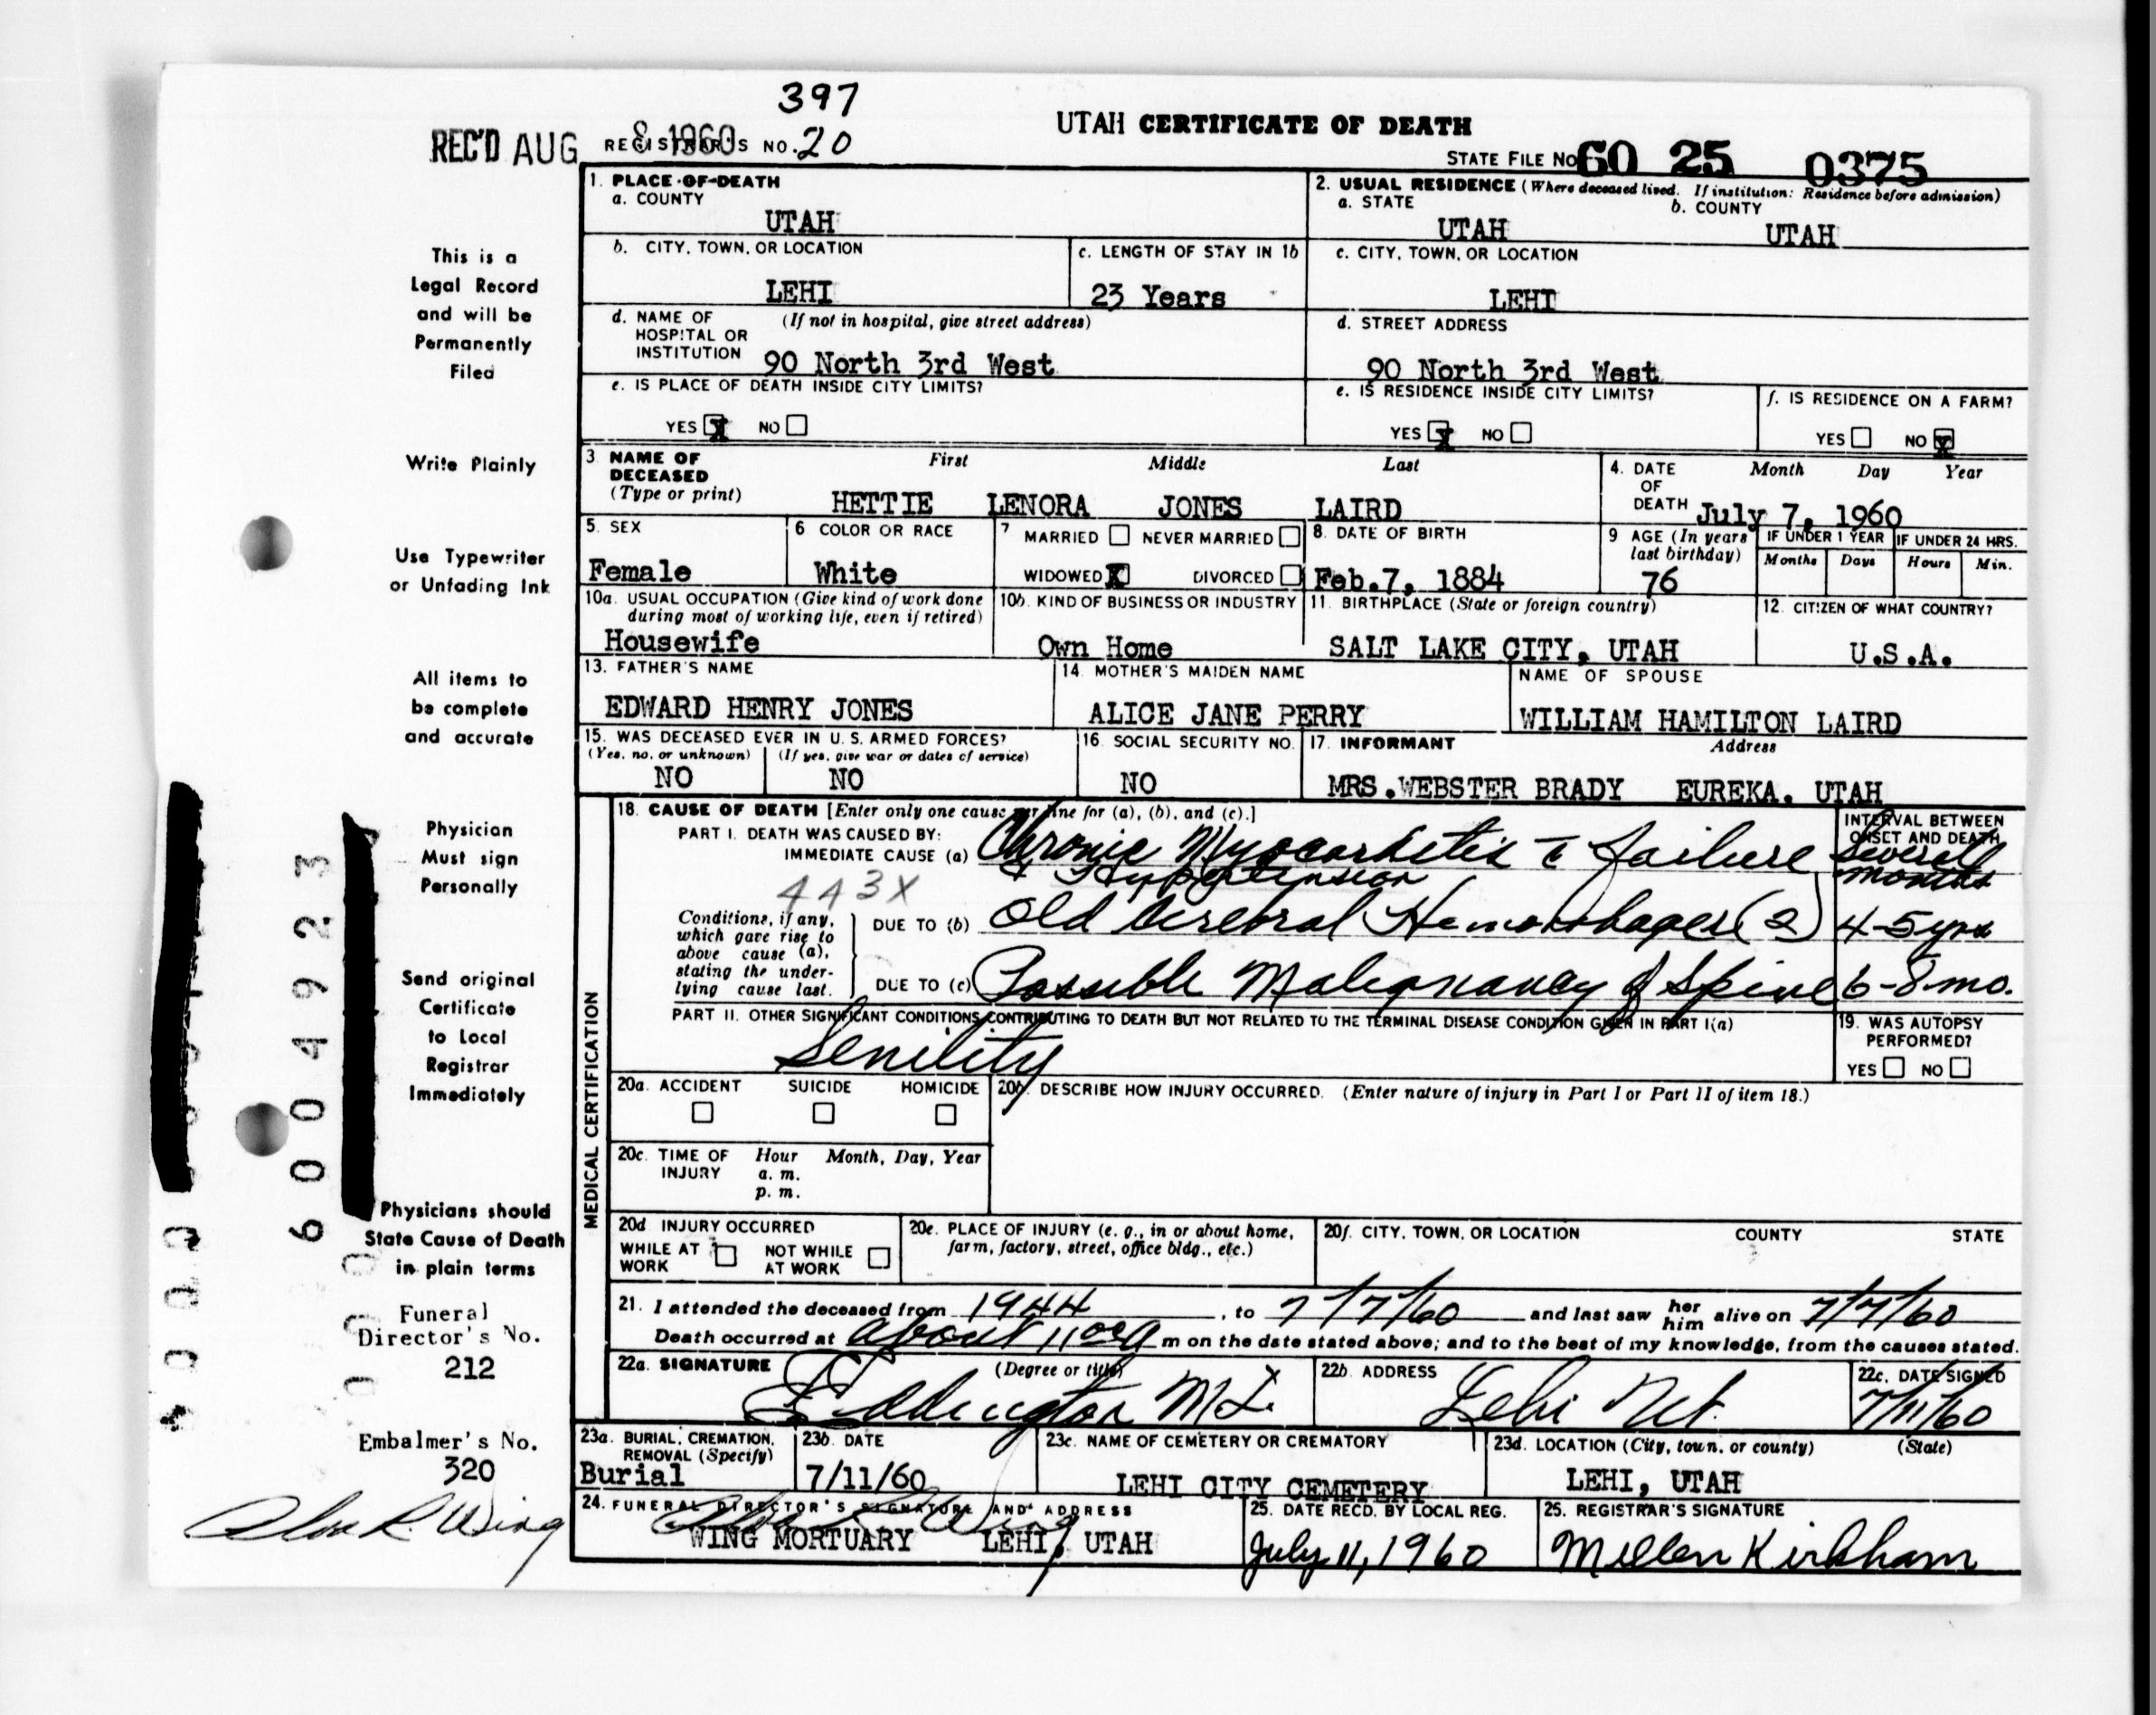 397
REC'D AUG 8 1960
REGISTRAR'S NO. 20
UTAH CERTIFICATE OF DEATH
STATE FILE NO. 60 25 0375
1. PLACE OF DEATH
a. COUNTY
UTAH
2. USUAL RESIDENCE (Where deceased lived. If institution: Residence before admission)
a. STATE
UTAH
b. COUNTY
UTAH
b. CITY, TOWN, OR LOCATION
LEHI
c. LENGTH OF STAY IN 1b
23 Years
c. CITY, TOWN, OR LOCATION
LEHI
d. NAME OF HOSPITAL OR INSTITUTION (If not in hospital, give street address)
90 North 3rd West
d. STREET ADDRESS
90 North 3rd West
e. IS PLACE OF DEATH INSIDE CITY LIMITS?
YES X NO
e. IS RESIDENCE INSIDE CITY LIMITS?
YES X NO
f. IS RESIDENCE ON A FARM?
YES NO X
3. NAME OF DECEASED (Type or print)
First Middle Last
HETTIE LENORA JONES LAIRD
4. DATE OF DEATH
Month Day Year
July 7, 1960
5. SEX
Female
6 COLOR OR RACE
White
7 MARRIED NEVER MARRIED
WIDOWED X DIVORCED
8. DATE OF BIRTH
Feb.7, 1884
9 AGE (In years last birthday)
76
IF UNDER 1 YEAR
Months Days
IF UNDER 24 HRS.
Hours Min.
10a. USUAL OCCUPATION (Give kind of work done during most of working life, even if retired)
Housewife
10b. KIND OF BUSINESS OR INDUSTRY
Own Home
11. BIRTHPLACE (State or foreign country)
SALT LAKE CITY, UTAH
12. CITIZEN OF WHAT COUNTRY?
U.S.A.
13. FATHER'S NAME
EDWARD HENRY JONES
14. MOTHER'S MAIDEN NAME
ALICE JANE PERRY
NAME OF SPOUSE
WILLIAM HAMILTON LAIRD
15. WAS DECEASED EVER IN U. S. ARMED FORCES?
(Yes, no, or unknown) (If yes, give war or dates of service)
NO NO
16. SOCIAL SECURITY NO.
NO
17. INFORMANT Address
MRS.WEBSTER BRADY EUREKA, UTAH
MEDICAL CERTIFICATION
18. CAUSE OF DEATH [Enter only one cause per line for (a), (b), and (c).]
PART I. DEATH WAS CAUSED BY:
IMMEDIATE CAUSE (a) Chronic Myocarditis c̄ failure
& Hypertension
443X
INTERVAL BETWEEN ONSET AND DEATH
Several months
Conditions, if any, which gave rise to above cause (a), stating the underlying cause last.
DUE TO (b) Old Cerebral Hemorrhages (2)
4-5 yrs
DUE TO (c) Possible Malignancy of Spine
6-8 mo.
PART II. OTHER SIGNIFICANT CONDITIONS CONTRIBUTING TO DEATH BUT NOT RELATED TO THE TERMINAL DISEASE CONDITION GIVEN IN PART I(a)
Senility
19. WAS AUTOPSY PERFORMED?
YES NO
20a. ACCIDENT SUICIDE HOMICIDE
20b. DESCRIBE HOW INJURY OCCURRED. (Enter nature of injury in Part I or Part II of item 18.)
20c. TIME OF INJURY
Hour Month, Day, Year
a. m.
p. m.
20d INJURY OCCURRED
WHILE AT WORK NOT WHILE AT WORK
20e. PLACE OF INJURY (e. g., in or about home, farm, factory, street, office bldg., etc.)
20f. CITY, TOWN, OR LOCATION COUNTY STATE
21. I attended the deceased from 1944, to 7/7/60 and last saw her him alive on 7/7/60
Death occurred at about 11 00 A m on the date stated above; and to the best of my knowledge, from the causes stated.
22a. SIGNATURE (Degree or title)
Eddington M D.
22b. ADDRESS
Lehi Ut.
22c. DATE SIGNED
7/11/60
23a. BURIAL, CREMATION, REMOVAL (Specify)
Burial
23b. DATE
7/11/60
23c. NAME OF CEMETERY OR CREMATORY
LEHI CITY CEMETERY
23d. LOCATION (City, town, or county) (State)
LEHI, UTAH
24. FUNERAL DIRECTOR'S SIGNATURE AND ADDRESS
WING MORTUARY LEHI, UTAH
25. DATE RECD. BY LOCAL REG.
July 11, 1960
25. REGISTRAR'S SIGNATURE
Mellen Kirkham
This is a
Legal Record
and will be
Permanently
Filed
Write Plainly
Use Typewriter
or Unfading Ink
All items to
be complete
and accurate
Physician
Must sign
Personally
Send original
Certificate
to Local
Registrar
Immediately
Physicians should
State Cause of Death
in plain terms
Funeral
Director's No.
212
Embalmer's No.
320
Wing
6004923